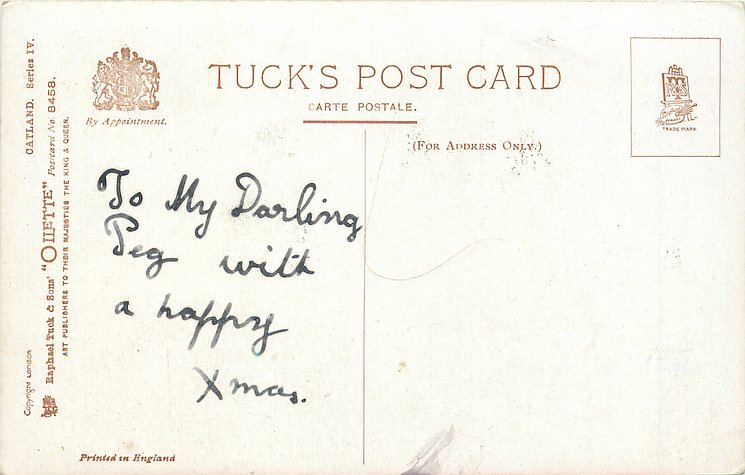 TUCK'S POST CARD
CARTE POSTALE.
By Appointment.
(FOR ADDRESS ONLY.)
TRADE MARK
CATLAND. Series IV.
Raphael Tuck & Sons' "OILETTE" Postcard No. 8458.
ART PUBLISHERS TO THEIR MAJESTIES THE KING & QUEEN.
Copyright London
To My Darling
Peg with
a happy
Xmas.
Printed in England